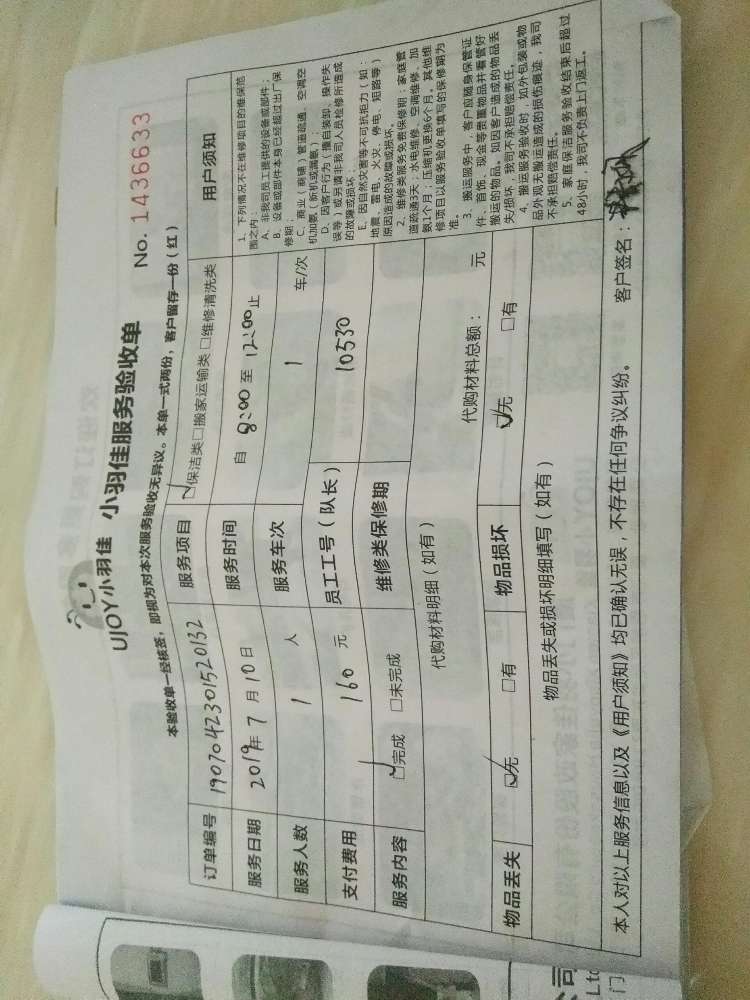 UJOY小羽佳 小羽佳服务验收单
No. 1436633
本验收单一经核签，即视为对本次服务验收无异议。本单一式两份，客户留存一份（红）
订单编号 190704230152 0132 服务项目 ☑保洁类□搬家运输类□维修清洗类
服务日期 2019年7月10日 服务时间 自 8:00 至 12:00 止
服务人数 1 人 服务车次 1 车/次
支付费用 160 元 员工工号（队长） 10530
服务内容 ☑完成 □未完成 维修类保修期
代购材料明细（如有） 代购材料总额： 元
物品丢失 ☑无 □有 物品损坏 ☑无 □有
物品丢失或损坏明细填写（如有）
用户须知
1、下列情况不在维修项目的维保范
围之内：
A、非我司员工提供的设备或部件；
B、设备或部件本身已经超过出厂保
修期；
C、商业（商铺）管道疏通、空调空
机加氨（新机或漏氨）；
D、因客户行为（擅自装卸、操作失
误等）或另请非我司人员检修所造成
的故障或损坏；
E、因自然灾害等不可抗拒力（如：
地震、雷电、火灾、停电、短路等）
原因造成的故障或损坏。
2、维修类服务免费保修期：家庭管
道疏通3天；水电维修、空调维修、加
氨1个月；压缩机更换6个月。其他维
修项目以服务验收单填写的保修期为
准。
3、搬运服务中，客户应随身保管证
件、首饰、现金等贵重物品并看管好
搬运的物品。如因客户造成的物品丢
失/损坏，我司不承担赔偿责任。
4、搬运服务验收时，如外包装或物
品外观无搬运造成的损伤痕迹，我司
不承担赔偿责任。
5、家庭保洁服务验收结束后超过
48小时，我司不负责上门返工。
本人对以上服务信息以及《用户须知》均已确认无误，不存在任何争议纠纷。 客户签名：
公司
Ltd
门